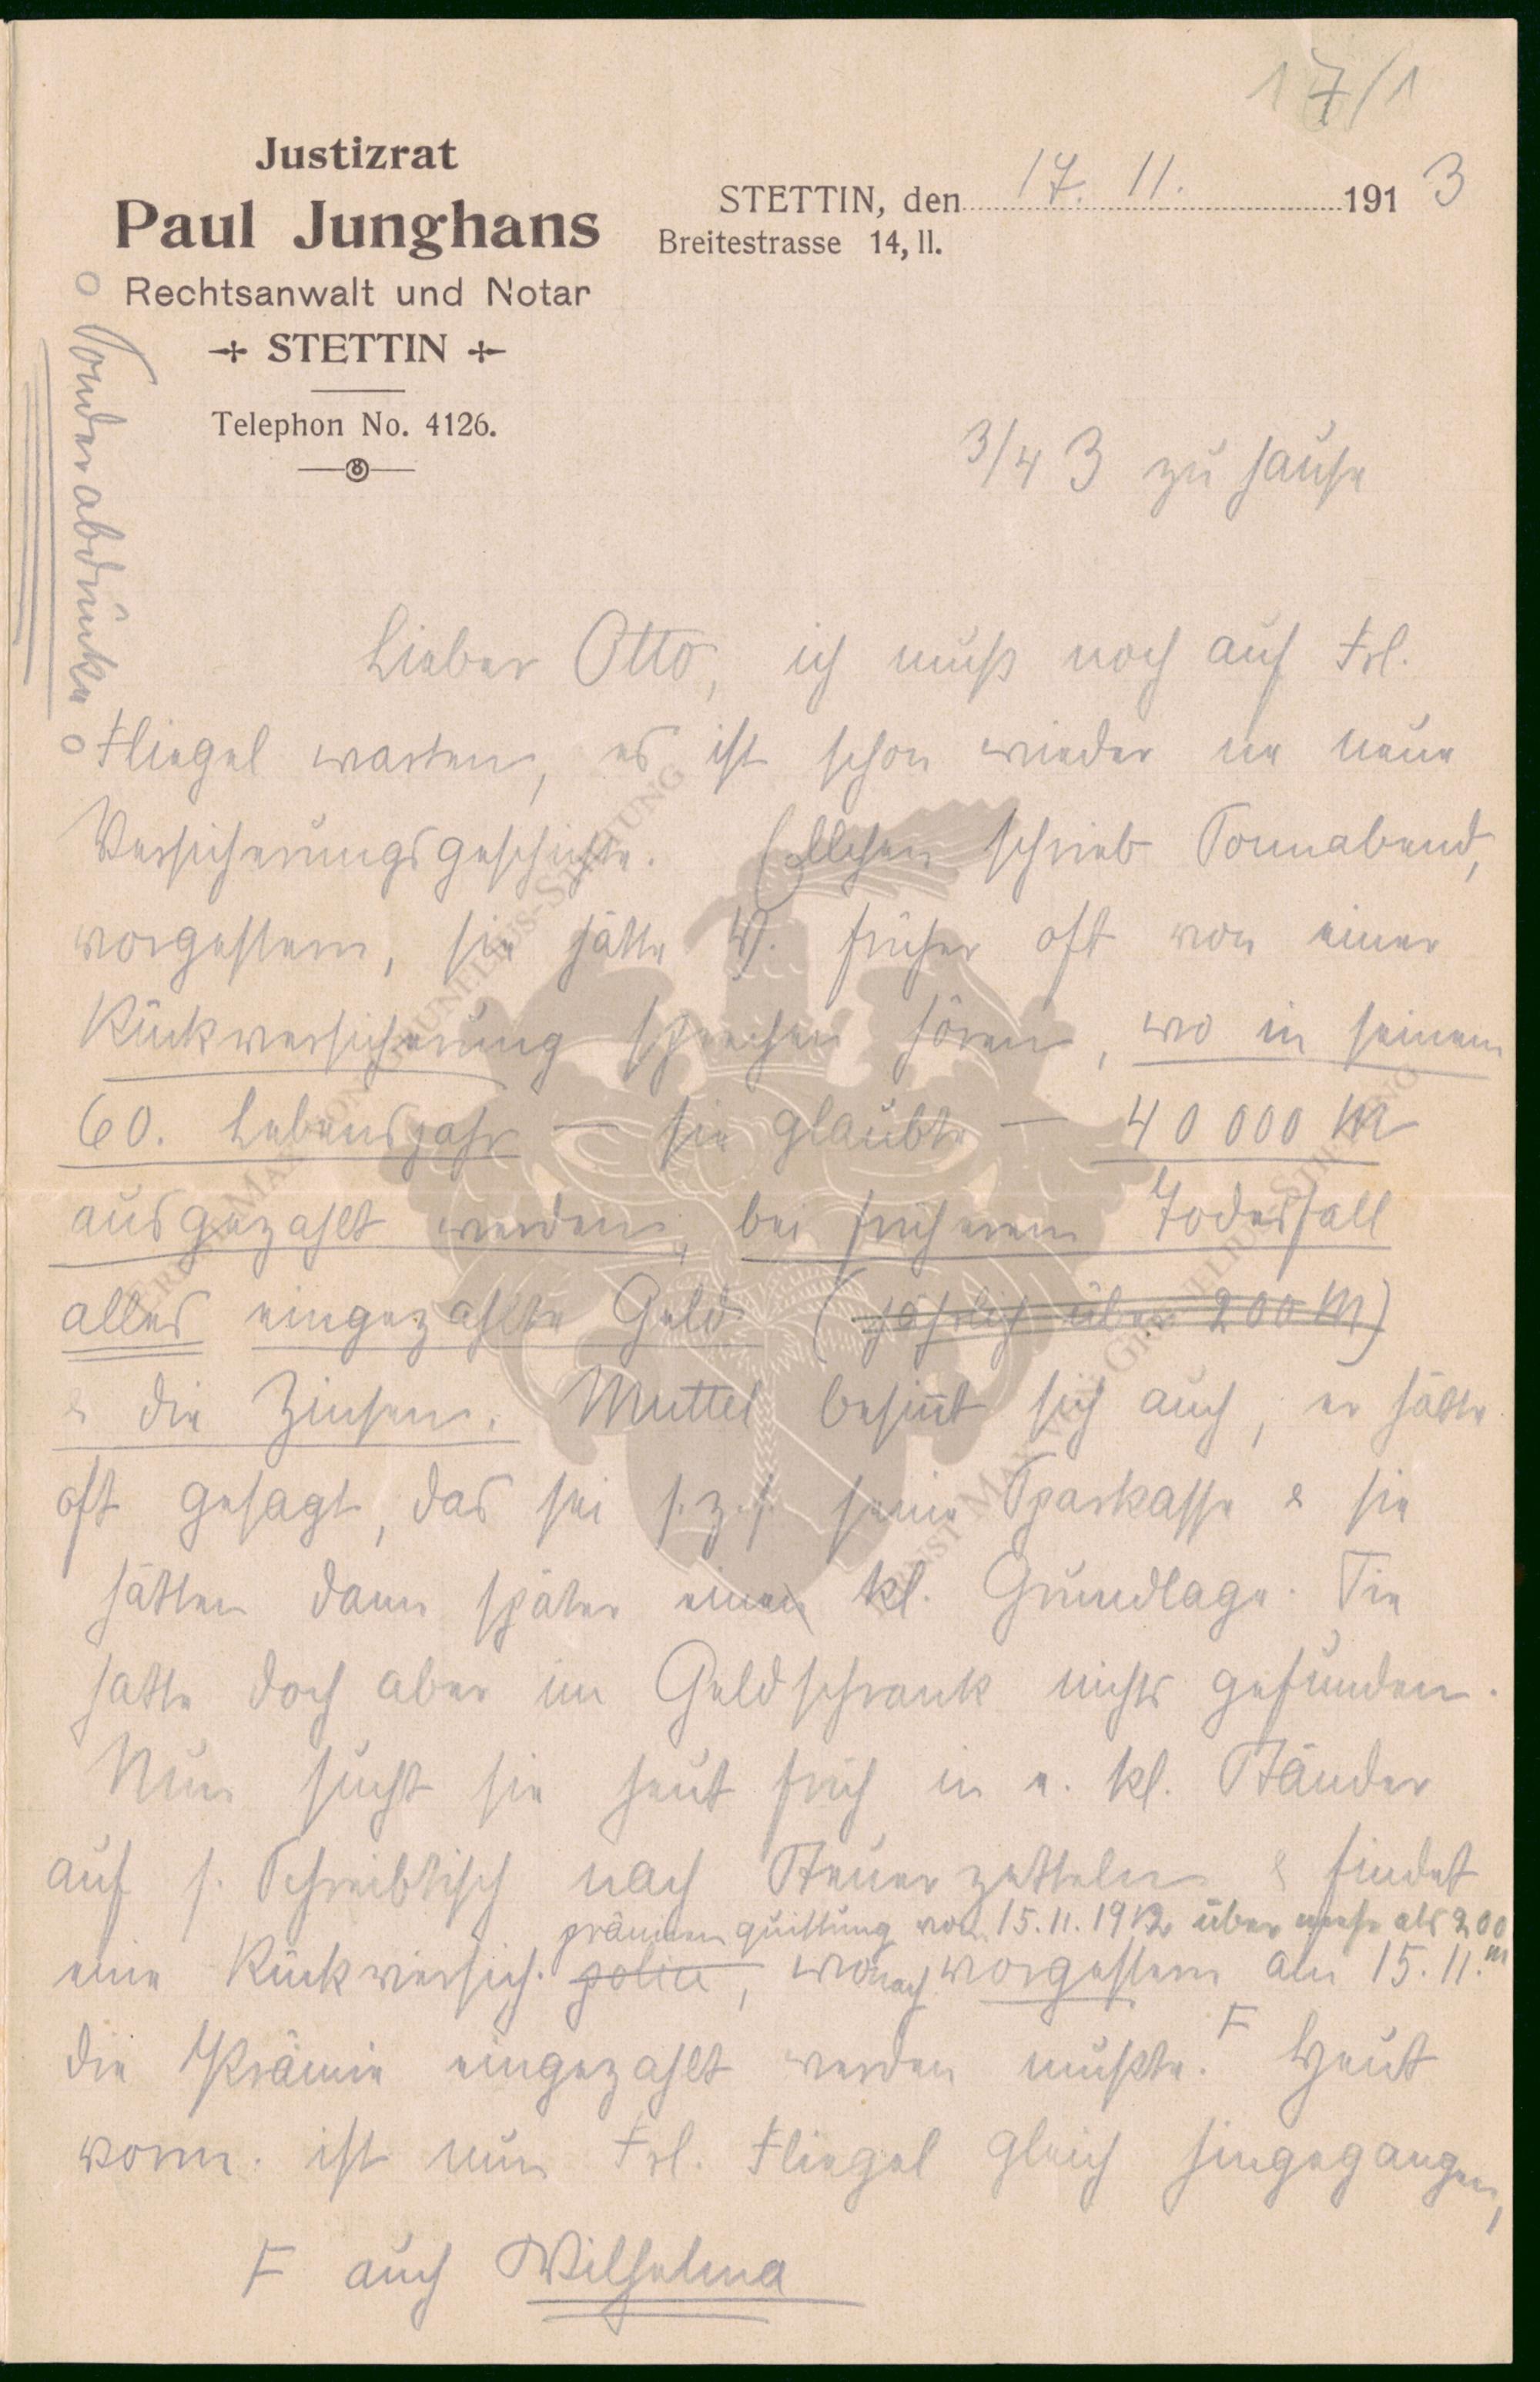 17/1
Justizrat
Paul Junghans
Rechtsanwalt und Notar
STETTIN
Telephon No. 4126.
STETTIN, den 17. 11. 1913
Breitestrasse 14, II.
Sonderabdrücke
3/4 3 zu hause
Lieber Otto, ich muß noch auf Frl.
Fliegel warten, es ist schon wieder ne neue
Versicherungsgeschichte. Ellchen schrieb Sonnabend,
vorgestern, sie hätte V. früher oft von einer
Rückversicherung sprechen hören, wo in seinem
60. Lebensjahr — sie glaubte — 40 000 M
ausgezahlt werden, bei früherem Todesfall
alles eingezahlte Geld (jährlich über 200 M)
& die Zinsen. Muttel besinnt sich auch, er hätte
oft gesagt, das sei s. z. s. seine Sparkasse & sie
hätten dann später eine kl. Grundlage. Sie
hatte doch aber im Geldschrank nichts gefunden.
Nun sucht sie heut früh in e. kl. Ständer
auf s. Schreibtisch nach Steuerzetteln & findet
prämienquittung vom 15.11.1912 über mehr als 200 M
eine Rückversich. police, wonach vorgestern am 15. 11.
die Prämie eingezahlt werden mußte. F Heut
vorm. ist nun Frl. Fliegel gleich hingegangen,
F auch Wilhelma